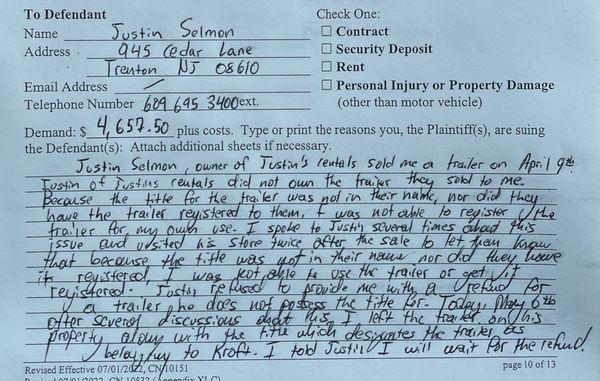 To Defendant
Check One:
Name Justin Selmon
☐ Contract
Address 945 Cedar Lane
☐ Security Deposit
Trenton NJ 08610
☐ Rent
Email Address
☐ Personal Injury or Property Damage
Telephone Number 609 695 3400 ext.
(other than motor vehicle)
Demand: $ 4,657.50 plus costs. Type or print the reasons you, the Plaintiff(s), are suing
the Defendant(s): Attach additional sheets if necessary.
Justin Selmon, owner of Justin's rentals sold me a trailer on April 9th.
Justin of Justins rentals did not own the trailer they sold to me.
Because the title for the trailer was not in their name, nor did they
have the trailer registered to them, I was not able to register the
trailer for my own use. I spoke to Justin several times about this
issue and visited his store twice after the sale to let them know
that because the title was not in their name nor did they have
it registered, I was not able to use the trailer or get it
registered. Justin refused to provide me with a refund for
a trailer he does not possess the title for. Today, May 6th
after several discussions about this, I left the trailer on his
property along with the title which designates the trailer as
belonging to Kroft. I told Justin I will wait for the refund.
Revised Effective 07/01/2022, CN 10151
page 10 of 13